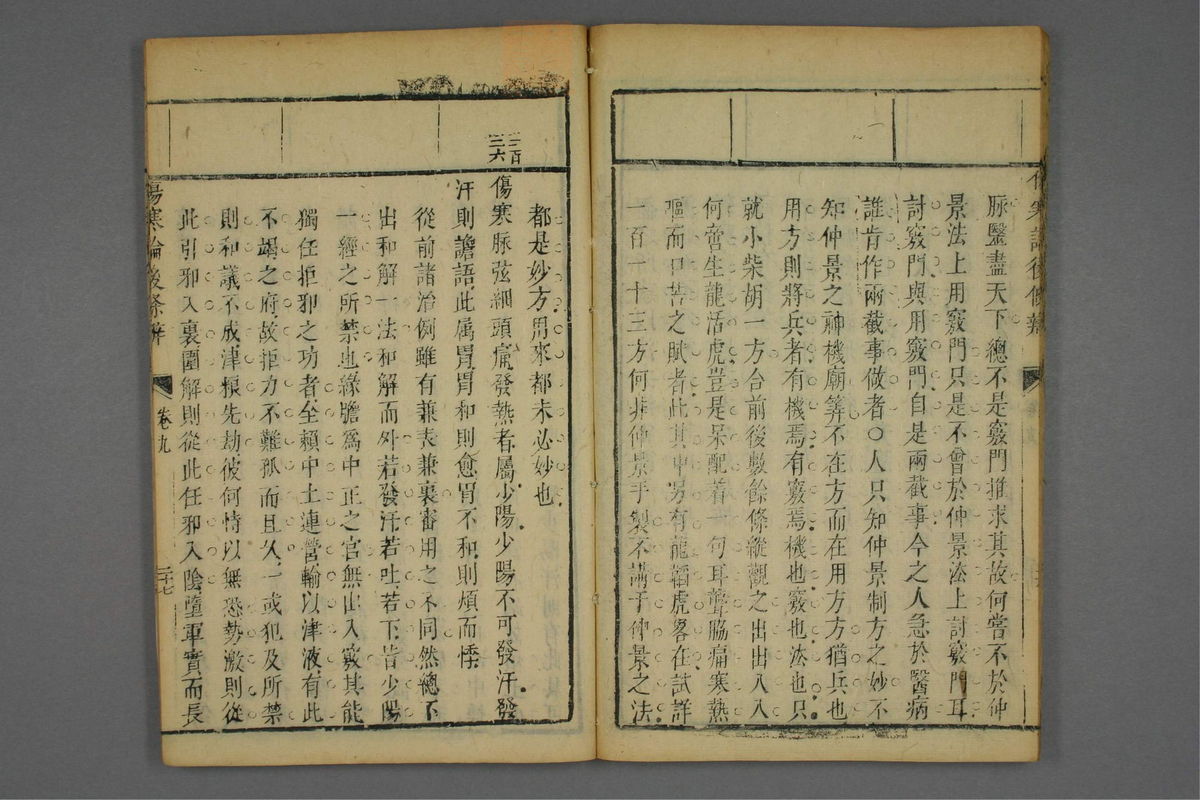 脉鑿盡天下總不是竅門推求其故何嘗不於仲
景法上用竅門只是不曾於仲景法上討竅門耳
討竅門與用竅門自是兩截事今之人急於醫病
誰肯作兩截事做者○人只知仲景制方之妙不
知仲景之神機廟筭不在方而在用方方猶兵也
用方則將兵者有機焉有竅焉機也竅也法也只
就小柴胡一方合前後數餘條縱觀之出出入入
何啻生龍活虎豈是呆配着一句耳聾脇痛寒熱
嘔而口苦之賦者此其中另有龍韜虎畧在試詳
一百一十三方何非仲景手製不講于仲景之法
都是妙方用來都未必妙也
傷寒脉弦細頭痛發熱者屬少陽少陽不可發汗發
汗則譫語此属胃胃和則愈胃不和則煩而悸
從前諸治例雖有兼表兼裏審用之不同然總不
出和解一法和解而外若發汗若吐若下皆少陽
一經之所禁也緣膽為中正之官無出入竅其能
獨任拒邪之功者全賴中土連營輸以津液有此
不竭之府故拒力不難孤而且久一或犯及所禁
則和議不成津粮先劫彼何情以無恐勢激則從
此引邪入裏圍解則從此任邪入陰墮軍實而長
傷寒論後條辨
卷九
二十七